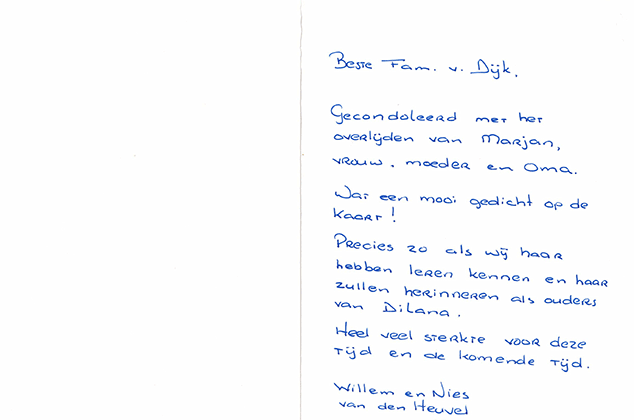 Beste Fam. v. Dijk.
Gecondoleerd met het
overlijden van Marjan,
vrouw, moeder en Oma.
Wat een mooi gedicht op de
kaart!
Precies zo als wij haar
hebben leren kennen en haar
zullen herinneren als ouders
van Dilana.
Heel veel sterkte voor deze
tijd en de komende tijd.
Willem en Nies
van den Heuvel